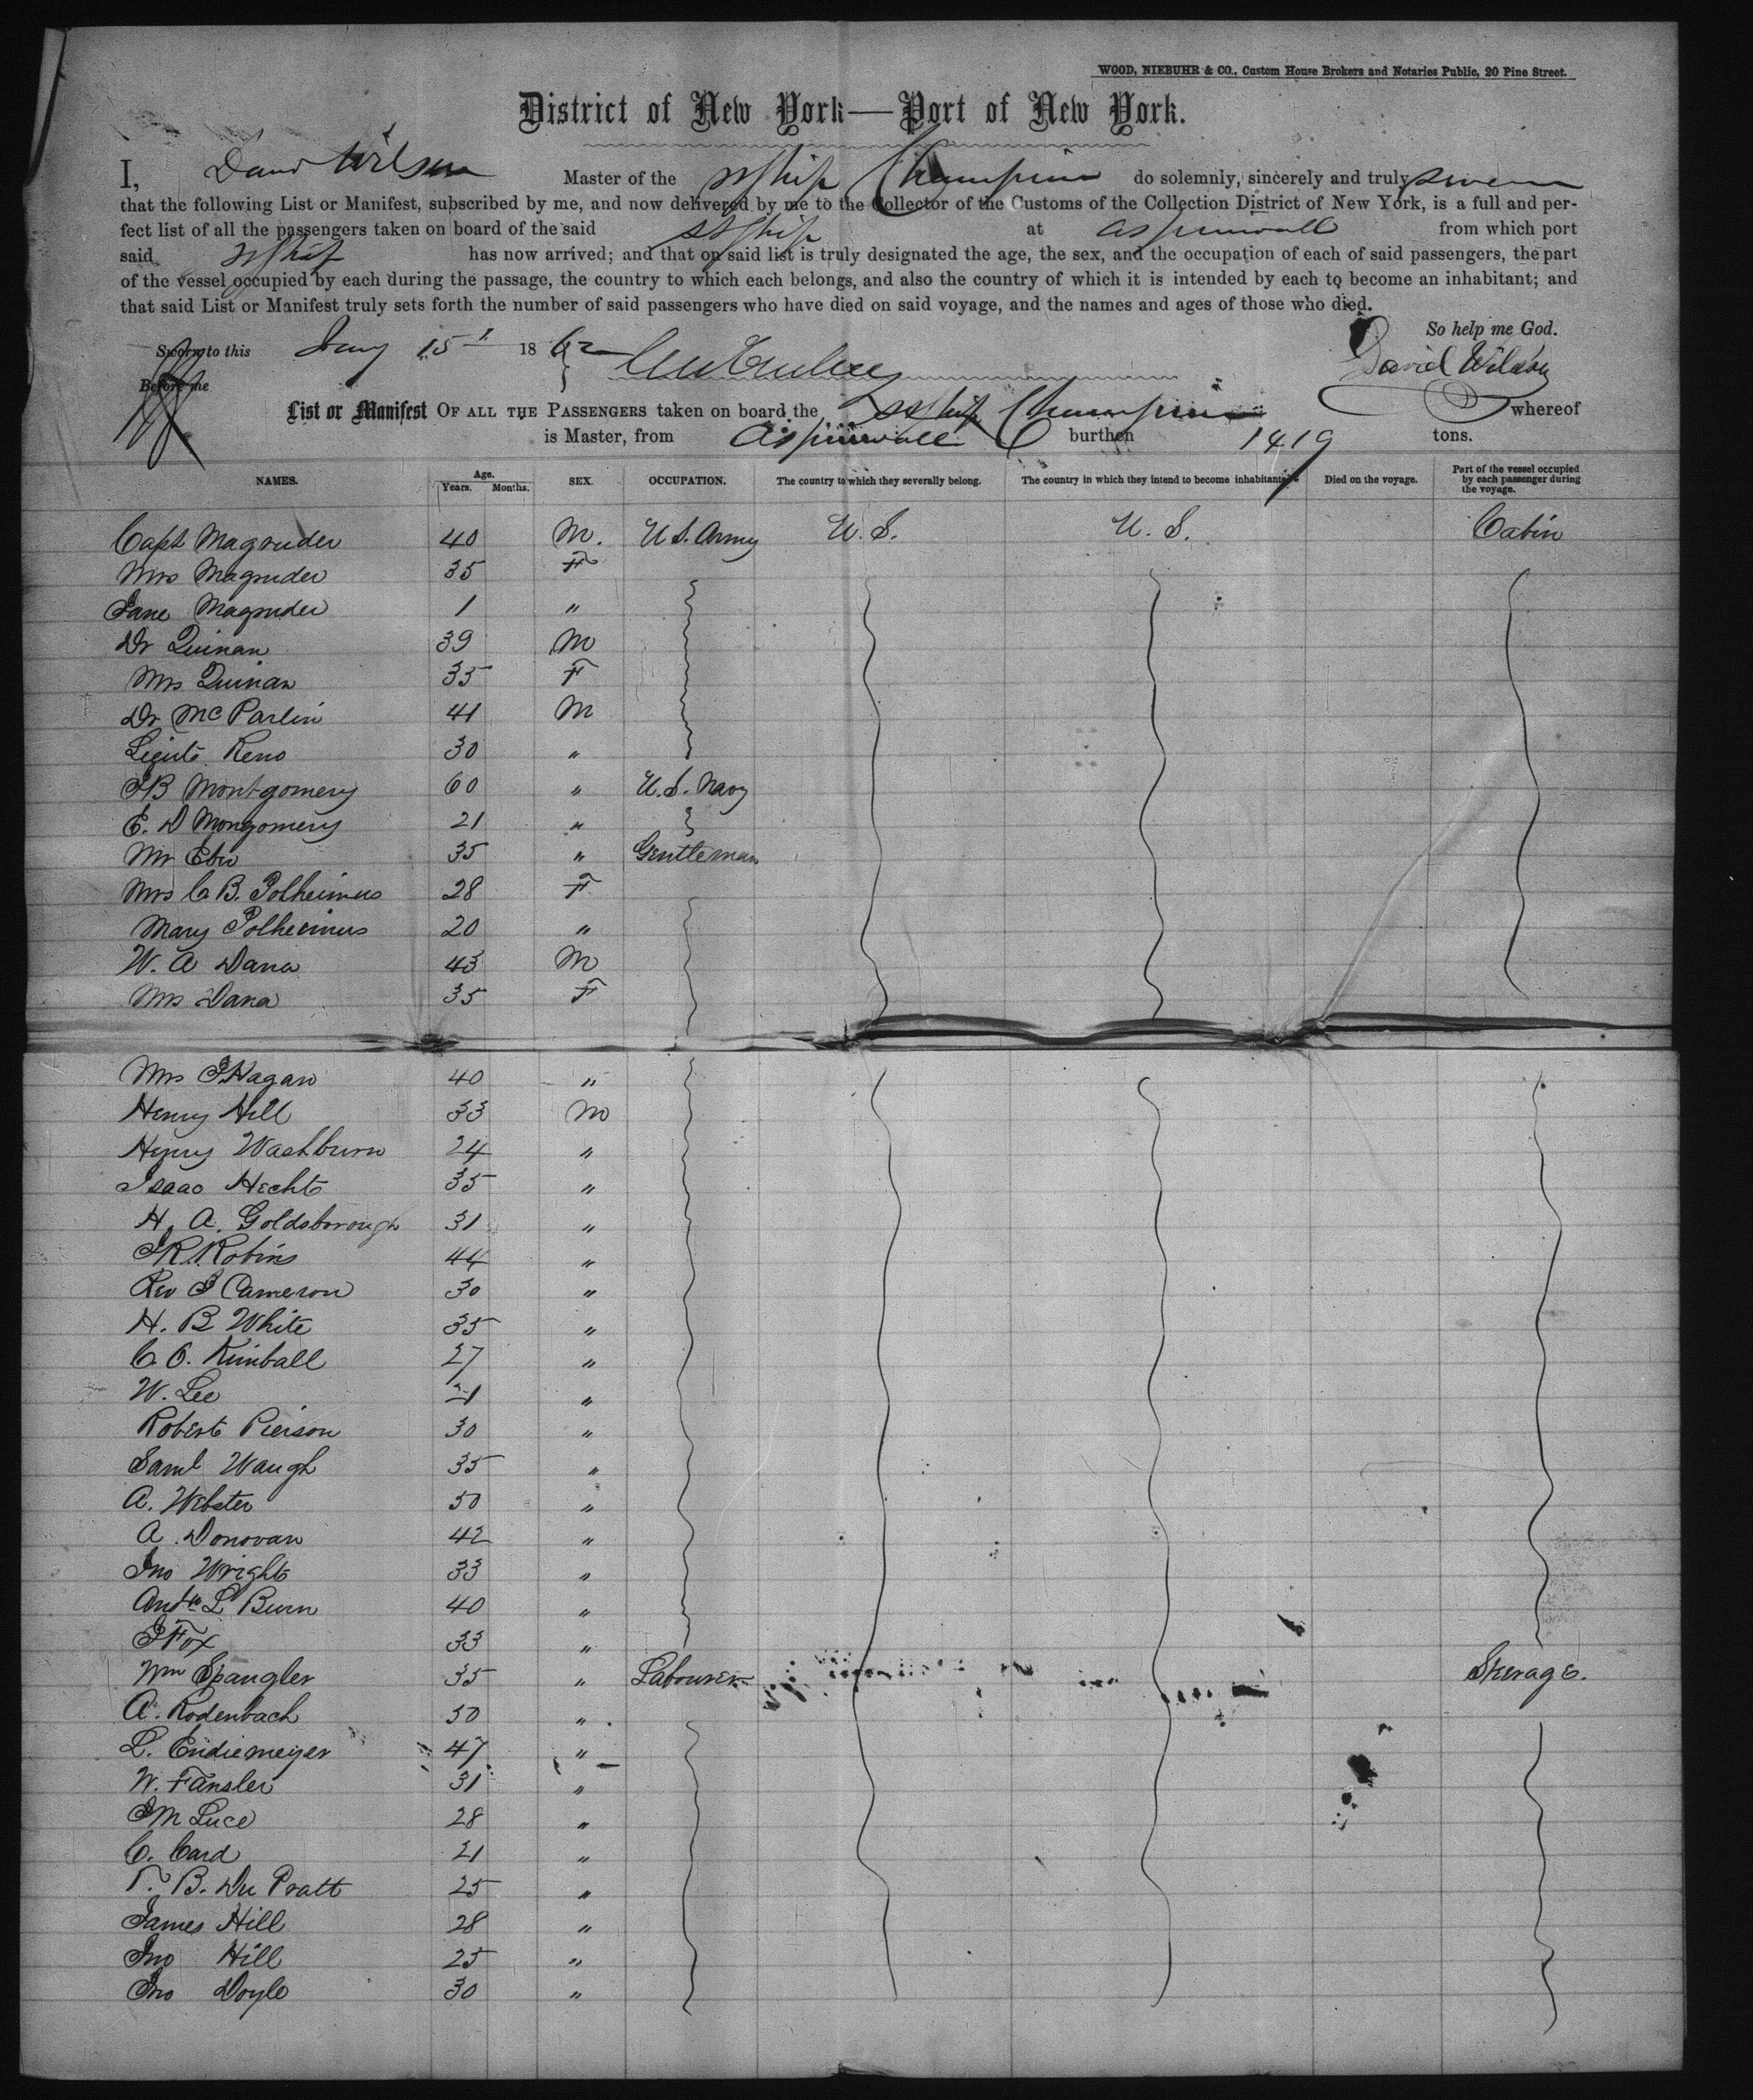 WOOD, NIEBUHR & CO., Custom House Brokers and Notaries Public, 20 Pine Street.
District of New York—Port of New York.
I, David Wilson Master of the SShip Champion do solemnly, sincerely and truly swear
that the following List or Manifest, subscribed by me, and now delivered by me to the Collector of the Customs of the Collection District of New York, is a full and per-
fect list of all the passengers taken on board of the said SShip at Aspinwall from which port
said SShip has now arrived; and that on said list is truly designated the age, the sex, and the occupation of each of said passengers, the part
of the vessel occupied by each during the passage, the country to which each belongs, and also the country of which it is intended by each to become an inhabitant; and
that said List or Manifest truly sets forth the number of said passengers who have died on said voyage, and the names and ages of those who died.
So help me God.
Sworn to this Jany 15 1862
David Wilson
Before me
List or Manifest OF ALL THE PASSENGERS taken on board the SShip Champion whereof
is Master, from Aspinwall burthen 1419 tons.
NAMES. Age. Years. Months. SEX. OCCUPATION. The country to which they severally belong. The country in which they intend to become inhabitants. Died on the voyage. Part of the vessel occupied by each passenger during the voyage.
Capt Magruder 40 M. U S. Army U. S. U. S. Cabin
Mrs Magruder 35 F
Jane Magruder 1 "
Dr Quinan 39 M
Mrs Quinan 35 F
Dr McParlin 41 M
Lieut Reno 30 "
JB Montgomery 60 " U. S. Navy
E. D Mongomery 21 "
Mr 35 " Gentleman
Mrs C. B. Polheimus 28 F
Mary Polheimus 20 "
W. A Dana 43 M
Mrs Dana 35 F
Mrs J Hagan 40 "
Henry Hill 33 M
Henry Washburn 24 "
Isaac Hecht 35 "
H. A. Goldsborough 31 "
J R Robins 44 "
Rev J Cameron 30 "
H. B White 35 "
C. O. Kimball 27 "
W. Lee 21 "
Robert Pierson 30 "
Saml Waugh 35 "
A. Webster 50 "
A. Donovan 42 "
Jno Wright 33 "
L Burn 40 "
J Fox 33 "
Wm Spangler 35 " Labourer Steerage.
A. Rodenbach 50 "
L. Endiemeyer 47 "
W. Fansler 31 "
J M Luce 28 "
C. Card 21 "
T. B. Du Pratt 25 "
James Hill 28 "
Jno Hill 25 "
Jno Doyle 30 "